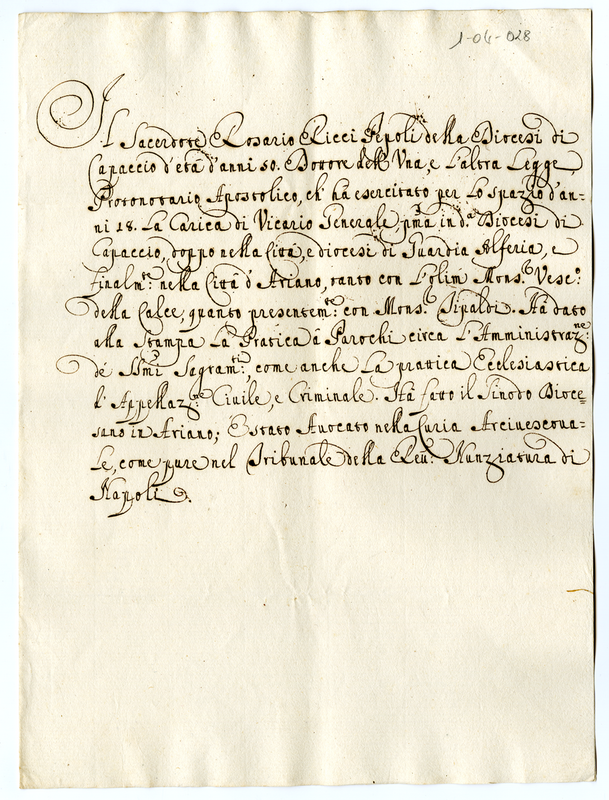 1-04-028
Il Sacerdote Rosario Ricci Pepoli della Diocesi di
Capaccio d'età d'anni 50. Dottore dell'Una, e L'altra Legge,
Protonotario Apostolico, ch'ha esercitato per Lo spazio d'an=
ni 18. La Carica di Vicario Generale p̃ma in d.ª Diocesi di
Capaccio, doppo nella Città, e diocesi di Guardia Alferia, e
finalm.te nella Città d'Ariano, tanto con L'olim Mons.r Vesc.o
della Calce, quanto presentem.te con Mons.r Tipaldi. Ha dato
alla Stampa La Pratica à Parochi circa L'Amministraz.ne
de' SSmi Sagram.ti, come anche La prattica Ecclesiastica
d'Appellaz.ne Civile, e Criminale. Ha fatto il Sinodo Dioce=
sano in Ariano; E stato Avocato nella Curia Arcivescova=
le, come pure nel Tribunale della Rev: Nunziatura di
Napoli.